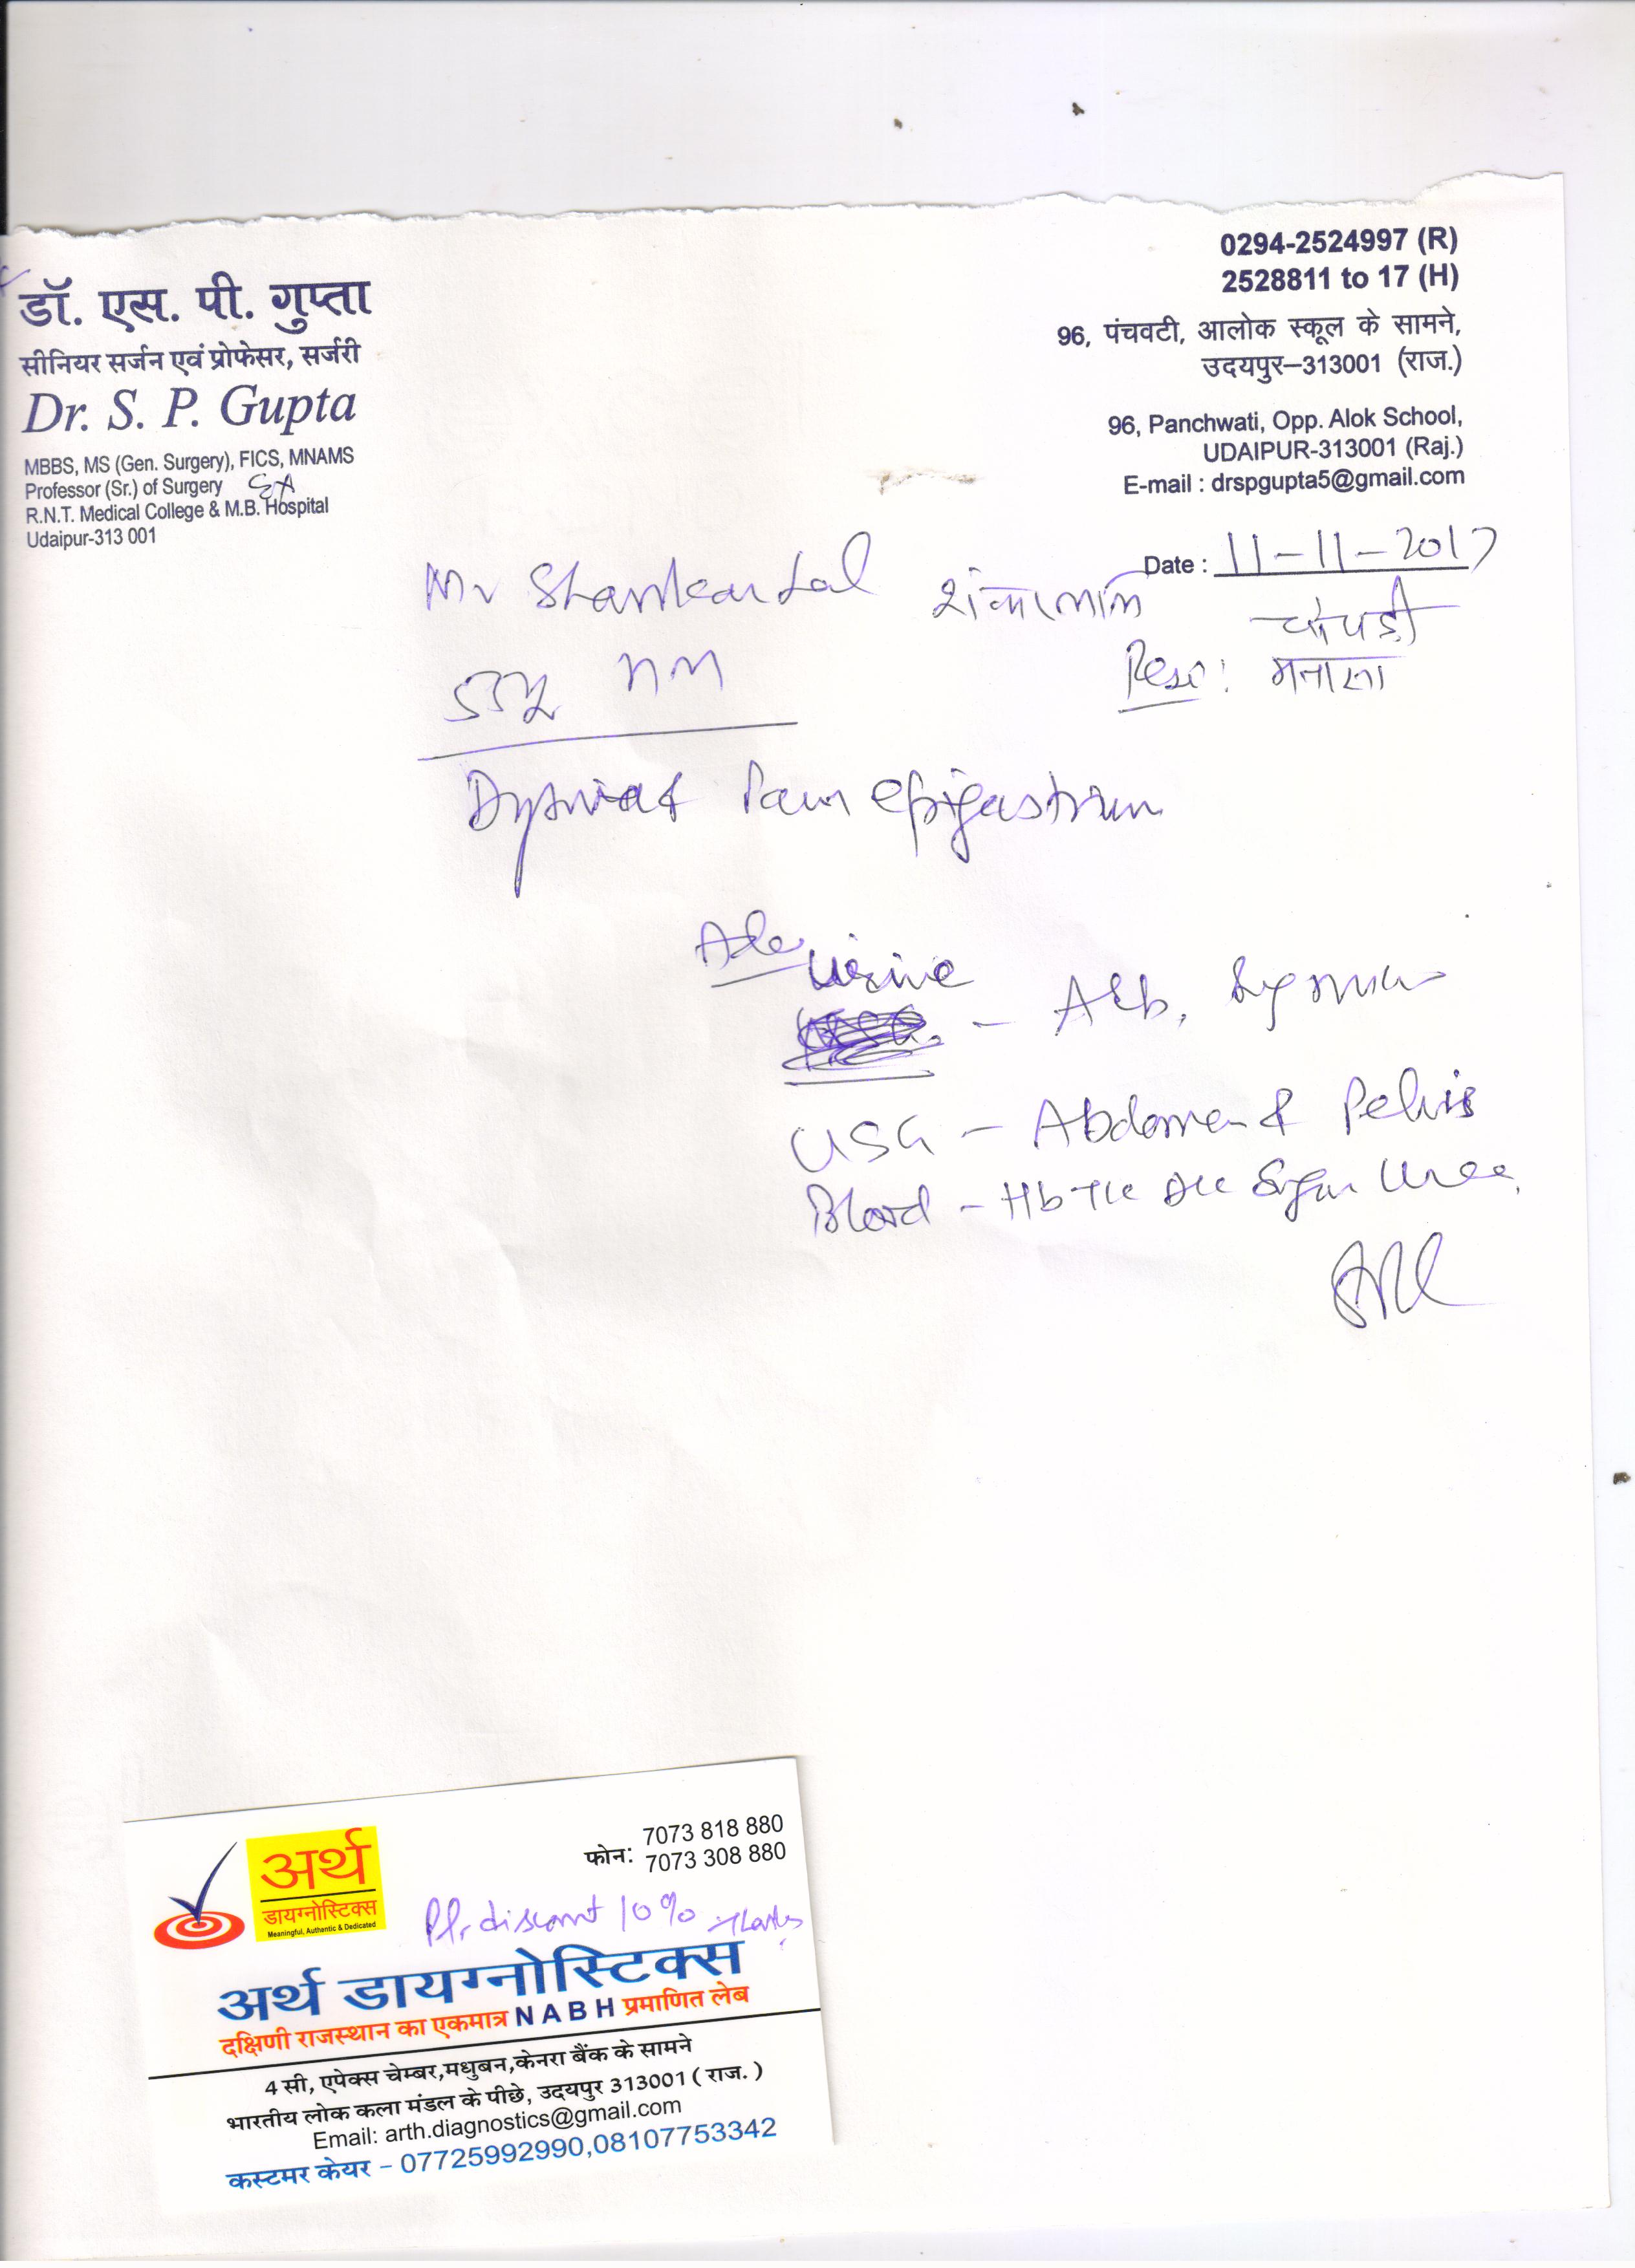 डॉ. एस. पी. गुप्ता
सीनियर सर्जन एवं प्रोफेसर, सर्जरी
Dr. S. P. Gupta
MBBS, MS (Gen. Surgery), FICS, MNAMS
Professor (Sr.) of Surgery
R.N.T. Medical College & M.B. Hospital
Udaipur-313 001
0294-2524997 (R)
2528811 to 17 (H)
96, पंचवटी, आलोक स्कूल के सामने,
उदयपुर–313001 (राज.)
96, Panchwati, Opp. Alok School,
UDAIPUR-313001 (Raj.)
E-mail : drspgupta5@gmail.com
Date : 11-11-2017
Mr Shankar Lal शंकरलाल
Pain epigastrium
Urine
- Alb,
USG - Abdomen & Pelvis
Blood - Hb TLC DLC Sugar Urea,
अर्थ
डायग्नोस्टिक्स
Meaningful, Authantic & Dedicated
फोन: 7073 818 880
7073 308 880
Pl. discount 10%
अर्थ डायग्नोस्टिक्स
दक्षिणी राजस्थान का एकमात्र NABH प्रमाणित लेब
4 सी, एपेक्स चेम्बर,मधुबन,केनरा बैंक के सामने
भारतीय लोक कला मंडल के पीछे, उदयपुर 313001 ( राज. )
Email: arth.diagnostics@gmail.com
कस्टमर केयर – 07725992990,08107753342